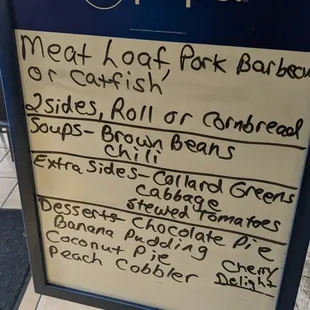 Meat Loaf, Pork Barbecu
or Catfish
2sides, Roll or Cornbread
Soups- Brown Beans
Chili
Extra Sides- Collard Greens
Cabbage
Stewed Tomatoes
Desserts- Chocolate Pie
Banana Pudding
Coconut Pie
Peach Cobbler
Cherry
Delight